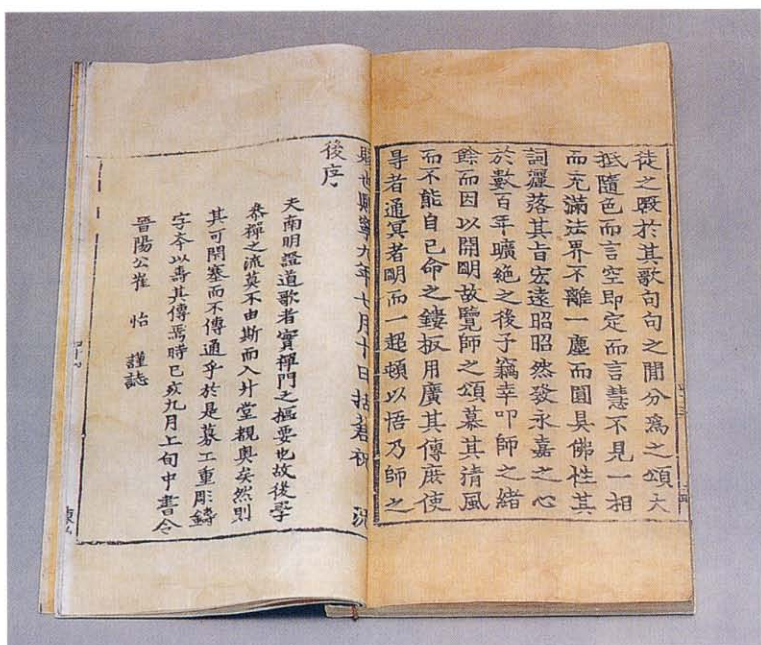 徒之暇於其歌句句之閒分爲之頌大
抵隨色而言空即定而言慧不見一相
而充滿法界不離一塵而圓具佛性其
詞灑落其旨宏遠昭昭然發永嘉之心
於數百年曠絶之後予竊幸叩師之緖
餘而因以開明故覽師之頌慕其清風
而不能自已命之鏤板用廣其傳庶使
㝵者通冥者明而一起頓以悟乃師之
賜也熙寧九年七月十日括蒼祝 況
後序
夫南明證道歌者實禪門之樞要也故後學
叅禪之流莫不由斯而入升堂覩奥矣然則
其可閇塞而不傳通乎於是募工重彫鑄
字夲以壽其傳焉時已亥九月上旬中書令
晉陽公崔 怡 謹誌